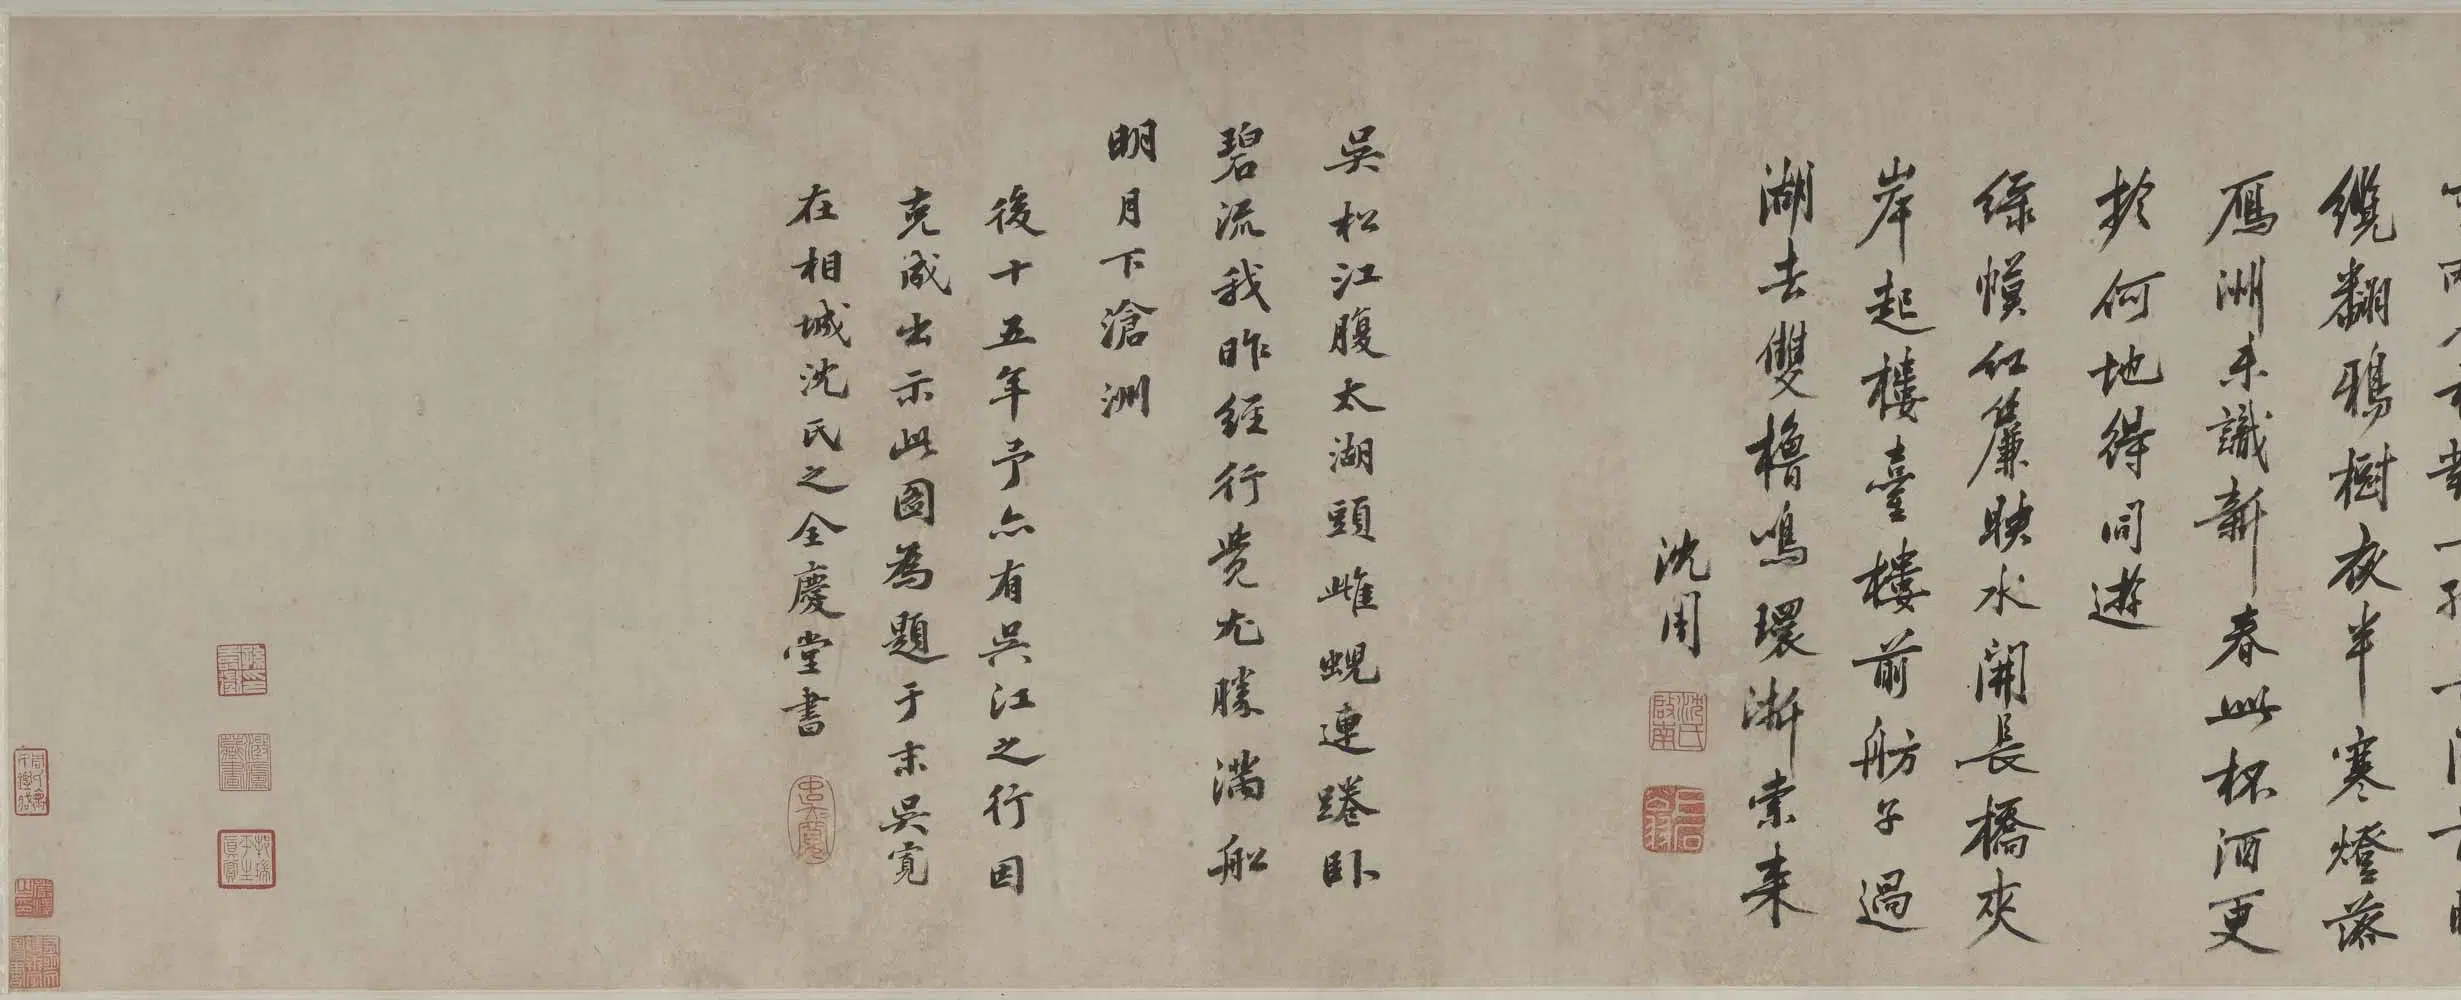 纜翻鴉樹夜半寒燈落
鴈洲未識新春此杯酒更
於何地得同遊
綠幙紅簾映水開長橋夾
岸起樓臺樓前舫子過
湖去雙櫓鳴環漸索来
沈周
沈氏啟南
吳松江腹太湖頭雌蜺連蜷卧
碧流我昨經行覺尤勝滿船
明月下滄洲
後十五年予亦有吳江之行因
克成出示此圖為題于末吳寬
在相城沈氏之全慶堂書